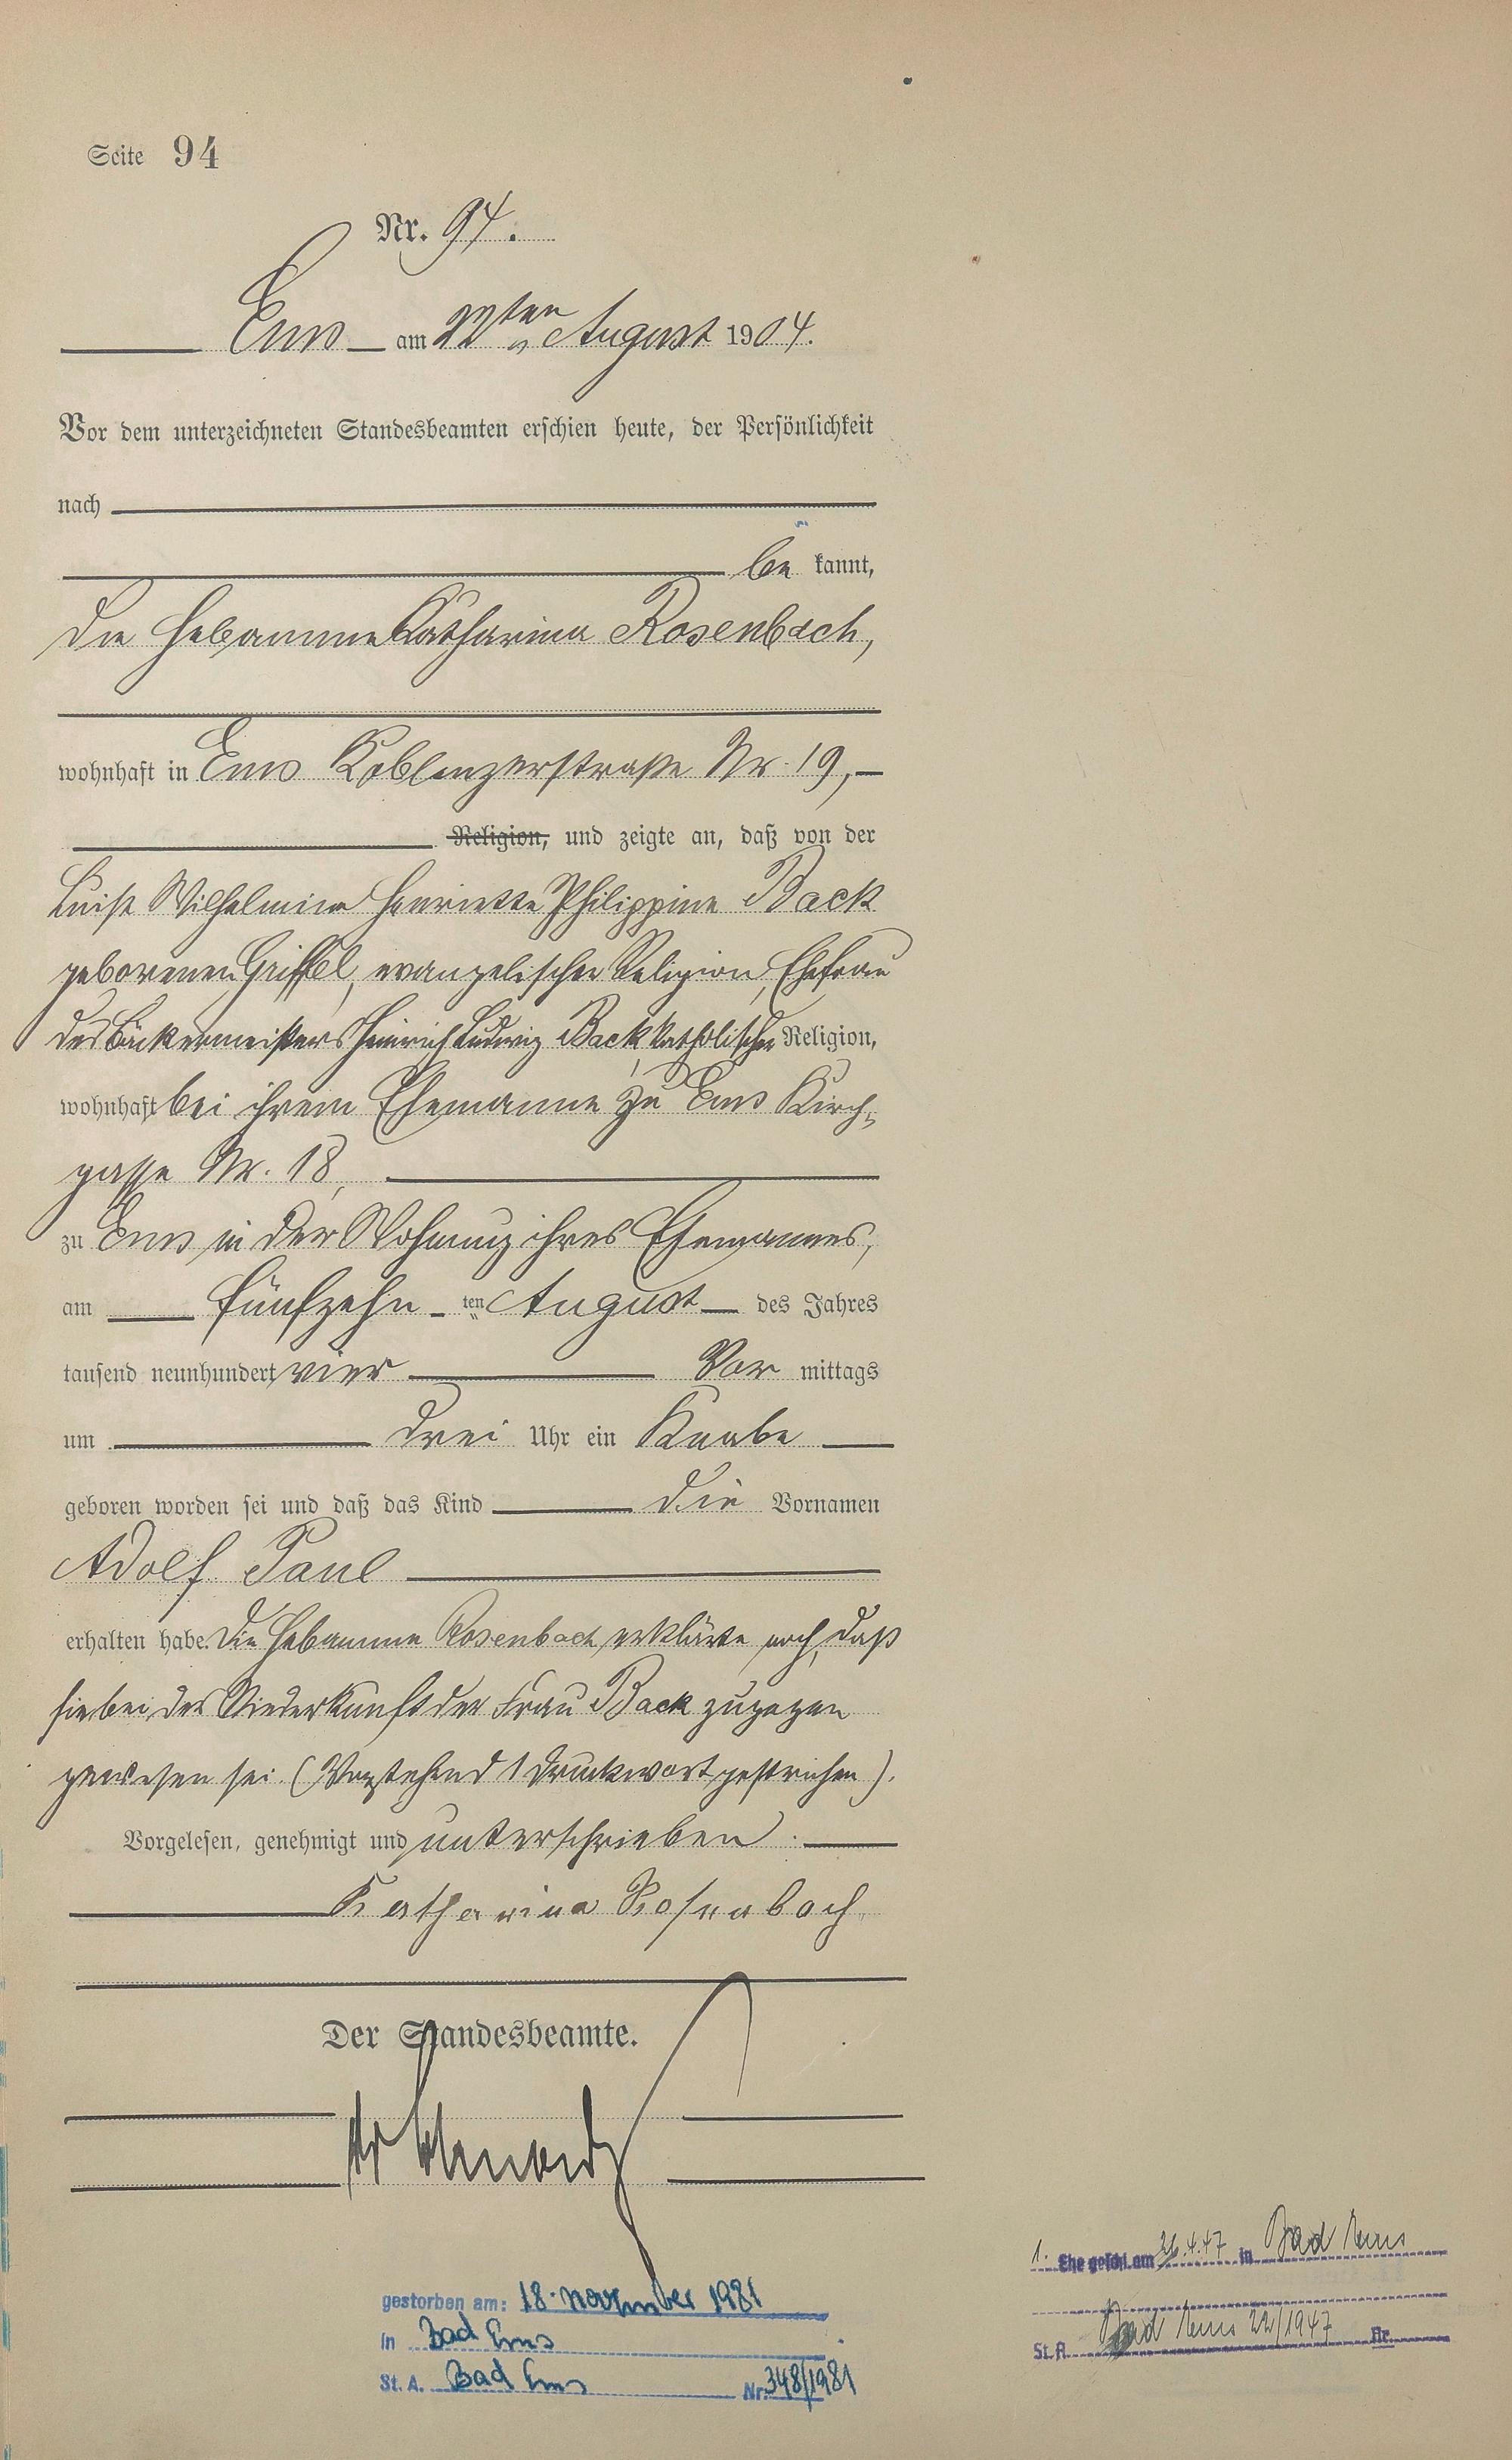 Seite 94
Nr. 94.
Ems am 22ten August 1904.
Vor dem unterzeichneten Standesbeamten erschien heute, der Persönlichkeit
nach
be kannt,
die Hebamme Katharina Rosenbach,
wohnhaft in Ems Koblenzerstraße Nr. 19,
Religion, und zeigte an, daß von der
Luise Wilhelmine Henriette Philippine Back
geborenen Griffel, evangelischer Religion, Ehefrau
des Bäckermeisters Heinrich Ludwig Back, katholischer Religion,
wohnhaft bei ihrem Ehemanne zu Ems Kirch-
gasse Nr. 18,
zu Ems in der Wohnung ihres Ehemannes,
am fünfzehn ten August des Jahres
tausend neunhundert vier Vor mittags
um drei Uhr ein Knabe
geboren worden sei und daß das Kind die Vornamen
Adolf Paul
erhalten habe. Die Hebamme Rosenbach erklärte noch, daß
sie bei der Niederkunft der Frau Back zugegen
gewesen sei. (Vorstehend 1 Druckwort gestrichen).
Vorgelesen, genehmigt und unterschrieben.
Katharina Rosenbach
Der Standesbeamte.
gestorben am: 18. November 1981
in Bad Ems
St. A. Bad Ems Nr. 348/1981
1. Ehe geschl. am 26.4.47 in Bad Ems
St. A. Bad Ems 22/1947 Nr.